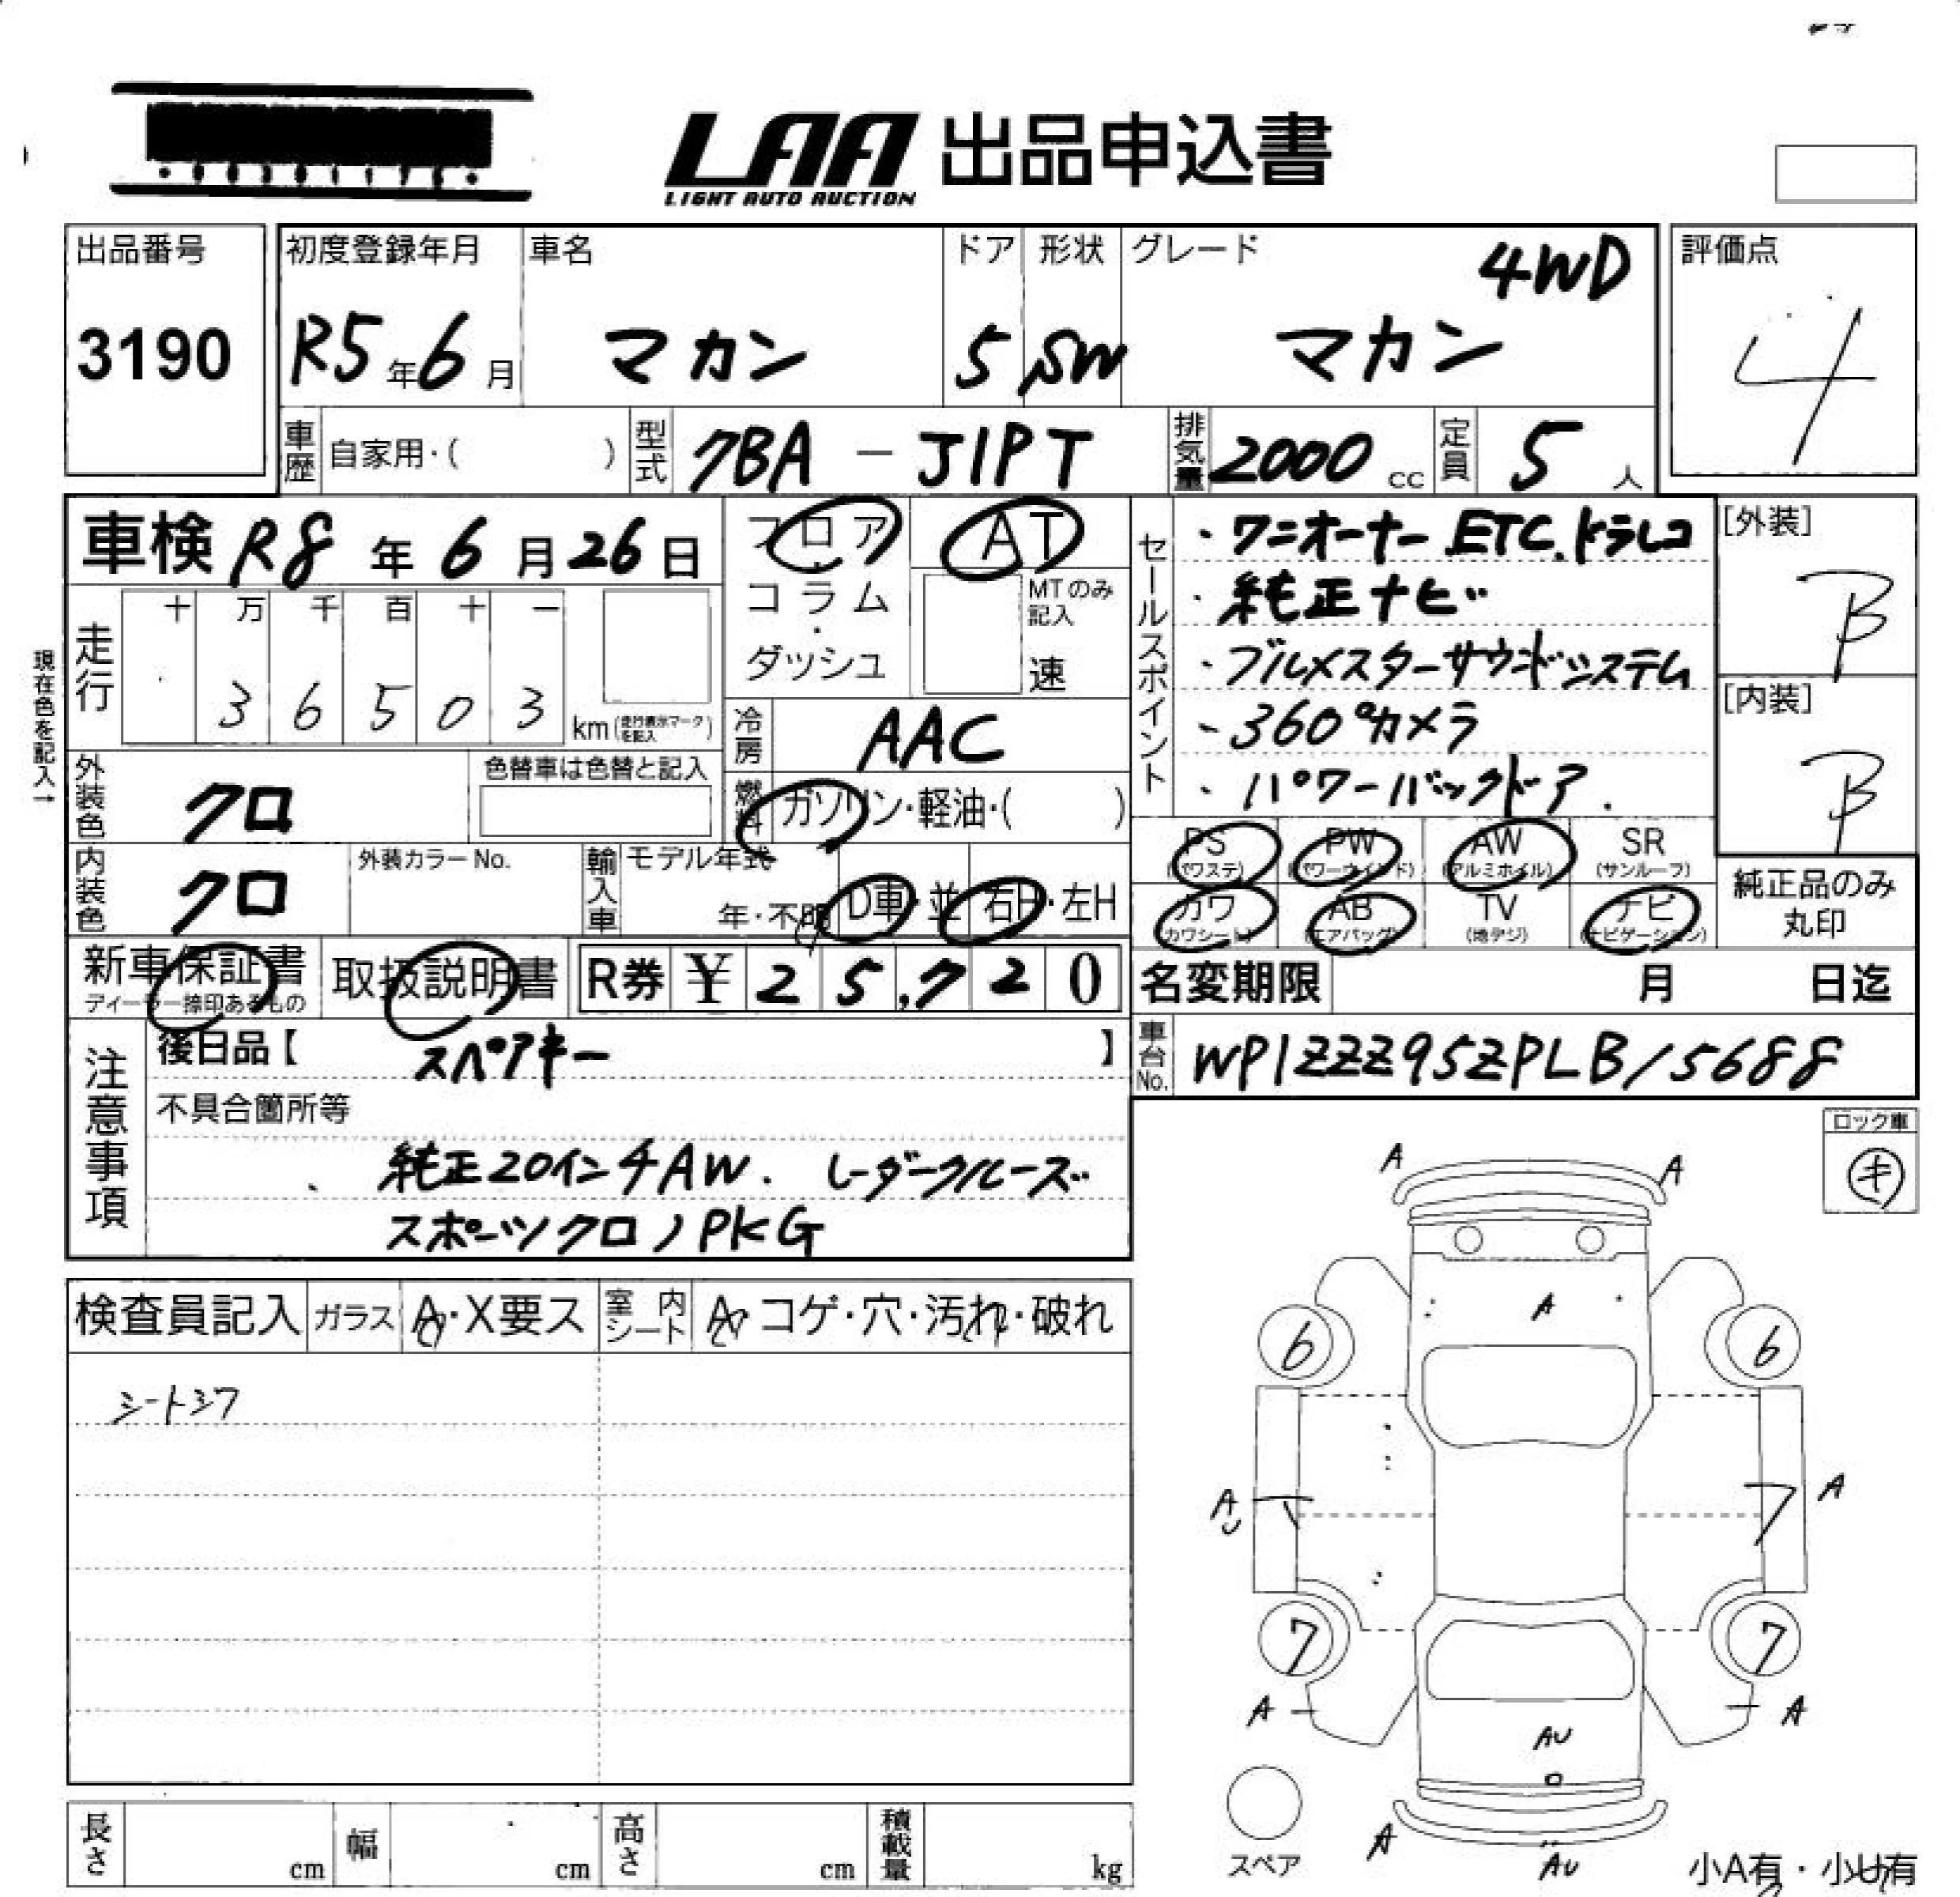 LAA 出品申込書
LIGHT AUTO AUCTION
出品番号 初度登録年月 車名 ドア 形状 グレード 4WD 評価点
3190 R5年6月 マカン 5 SW マカン 4
車歴 自家用・( ) 型式 7BA - J1PT 排気量 2000 cc 定員 5 人
車検 R8年6月26日 フロア AT
コラム・ダッシュ MTのみ記入 速
走行 十 万 千 百 十 一
3 6 5 0 3 km (走行表示マークを記入)
現在色を記入→
冷房 AAC
外装色 クロ 色替車は色替と記入
燃料 ガソリン・軽油・( )
内装色 クロ 外装カラーNo. 輸入車 モデル年式 年・不明 D車・並 右H・左H
セールスポイント
・ワンオーナー ETC.ドラレコ
・純正ナビ
・ブルメスターサウンドシステム
・360°カメラ
・パワーバックドア.
[外装] B
[内装] B
PS (パワステ) PW (パワーウインド) AW (アルミホイル) SR (サンルーフ)
カワ (カワシート) AB (エアバッグ) TV (地デジ) ナビ (ナビゲーション)
純正品のみ丸印
新車保証書 ディーラー捺印あるもの 取扱説明書 R券 ¥ 2 5,7 2 0
名変期限 月 日迄
車台No. WP1ZZZ95ZPLB15688
注意事項
後日品【 スペアキー 】
不具合箇所等
純正20インチAW. レーダークルーズ
スポーツクロノPKG
ロック車
キ
検査員記入 ガラス A・X要ス 室内シート A・コゲ・穴・汚れ・破れ
シートシワ
A A
A
6 6
A A
7 7
A A
AU
A AU
スペア
小A有・小U有
長さ cm 幅 cm 高さ cm 積載量 kg